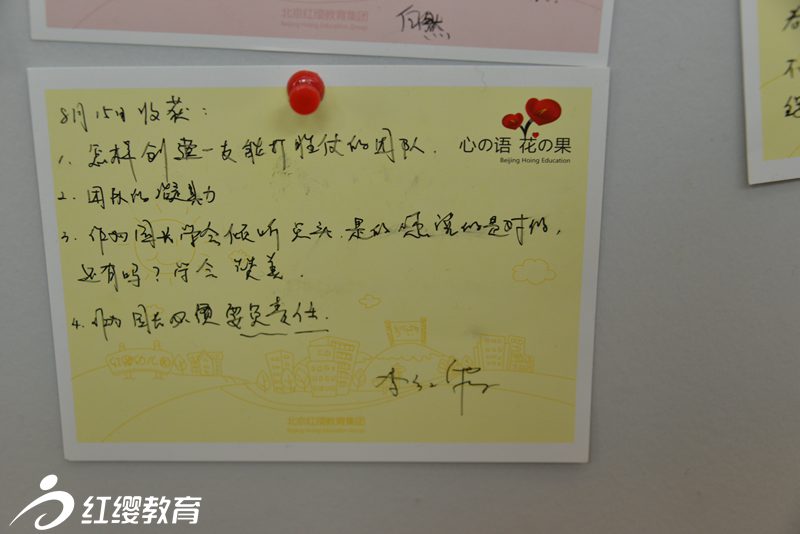 北京红缨教育集团
Beijing Hoing Education Group
自然
8月15日收获：
心の语 花の果
Beijing Hoing Education
1、怎样创建一支能打胜仗的团队.
2、团队的凝具力
3、作为园长学会倾听 点头.是的 您说的是对的，
还有吗？学会 赞美.
4、作为园长必须要负责任.
红缨幼儿园
李红
北京红缨教育集团
Beijing Hoing Education Group
红缨教育